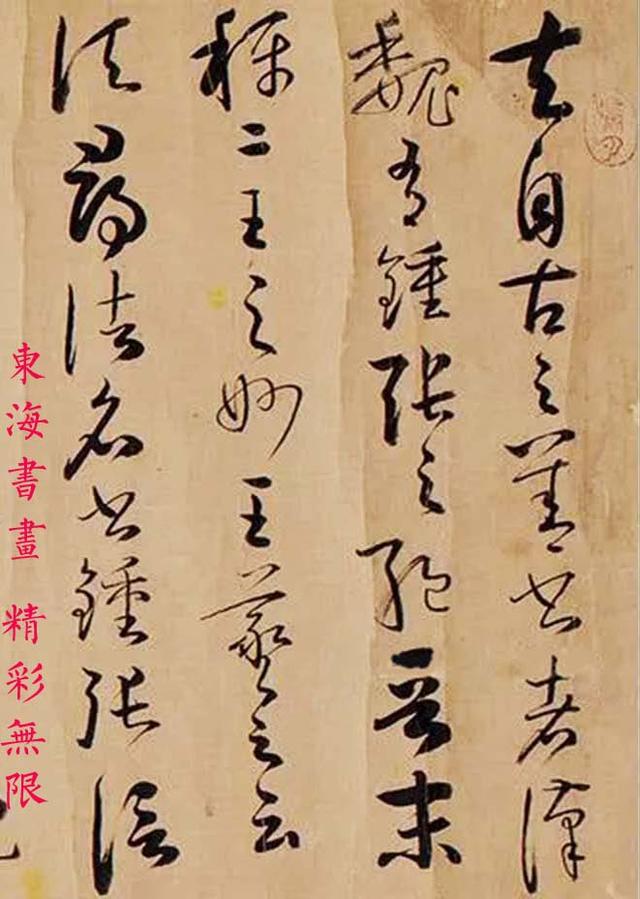 夫自古之善書者漢
魏有鍾張之絕晉末
稱二王之妙王羲之云
頃尋諸名書鍾張信
東海書畫 精彩無限